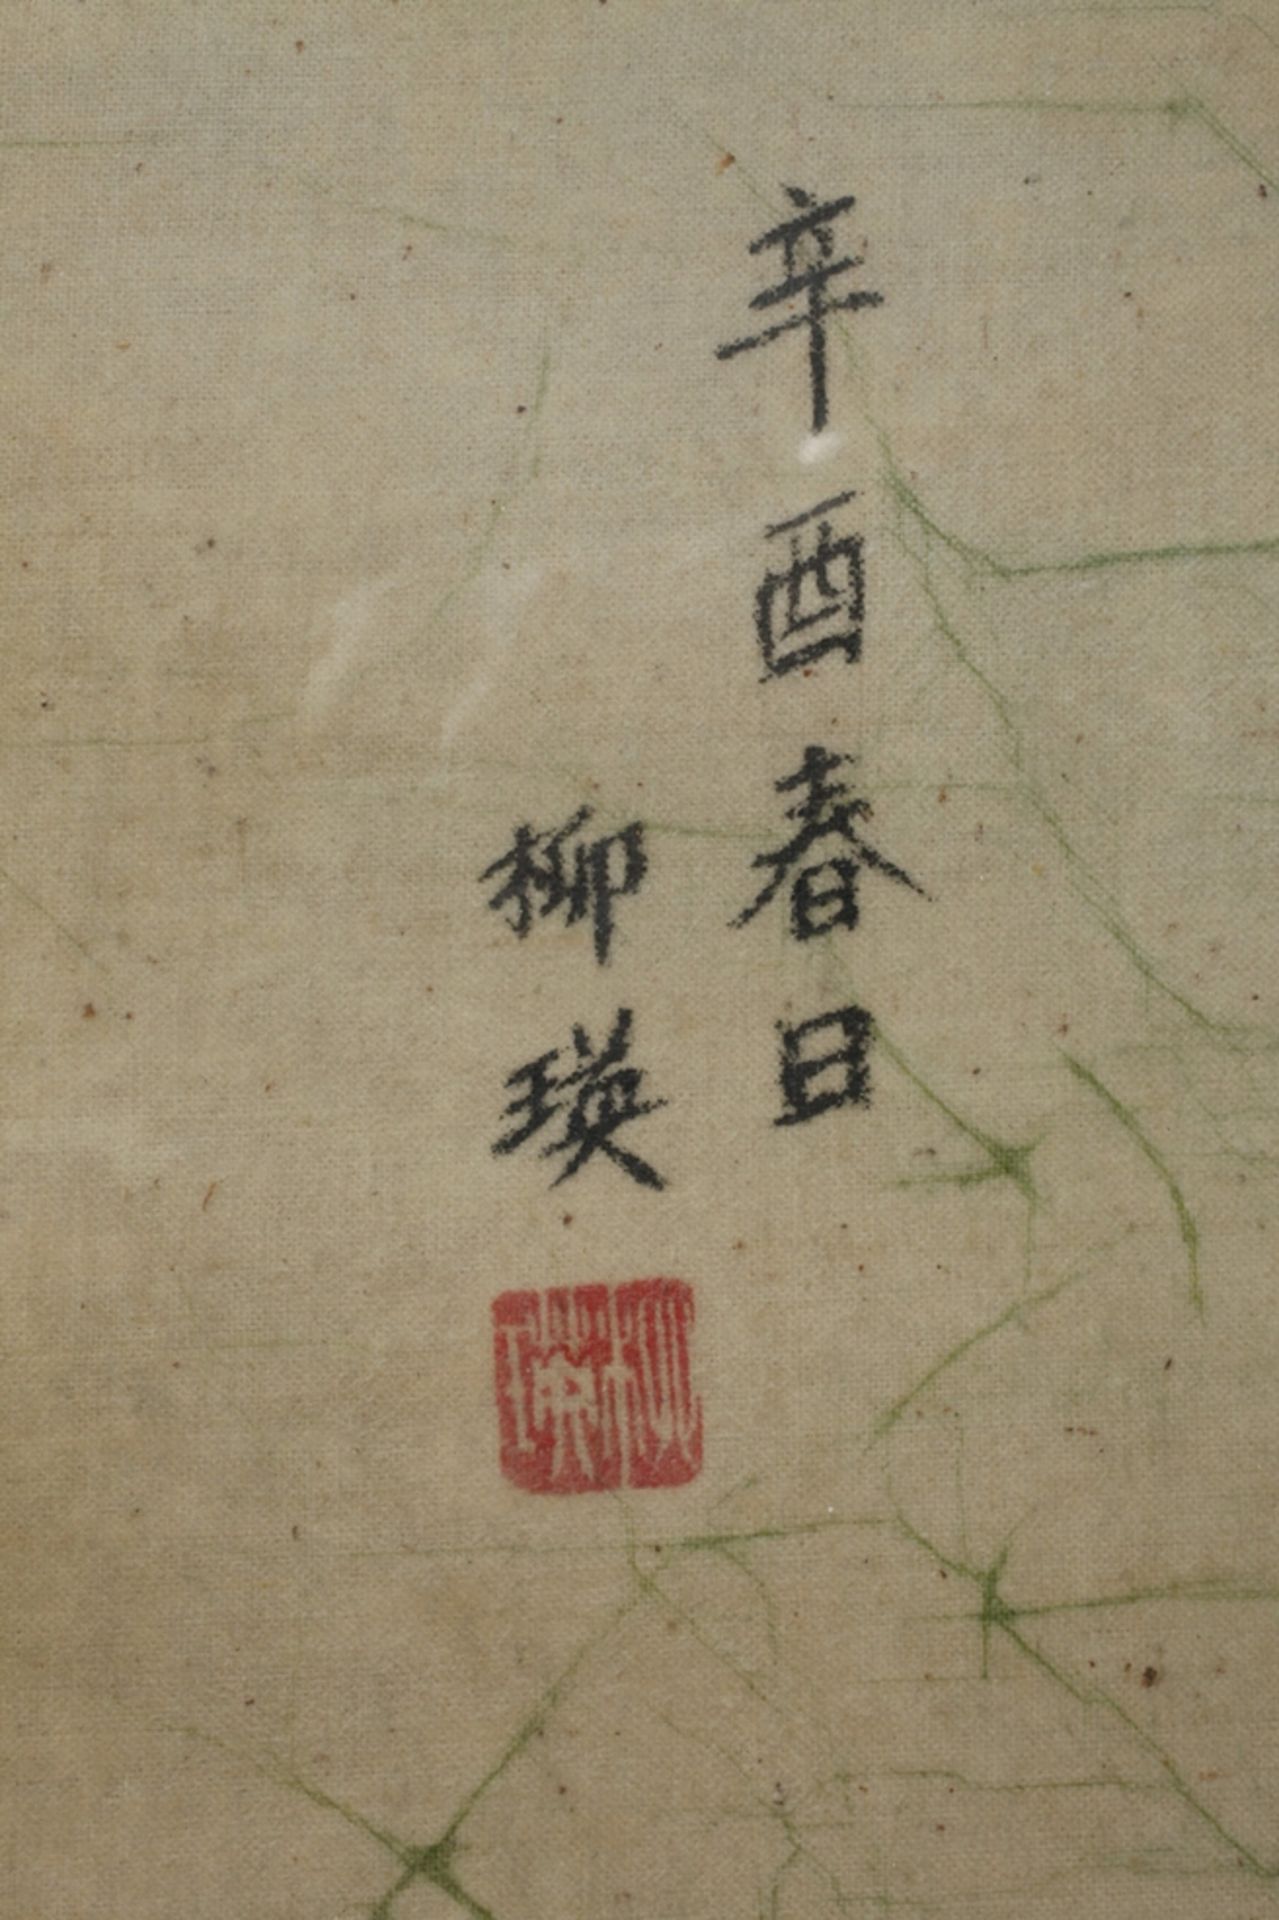 辛酉春日
柳瑛
柳瑛